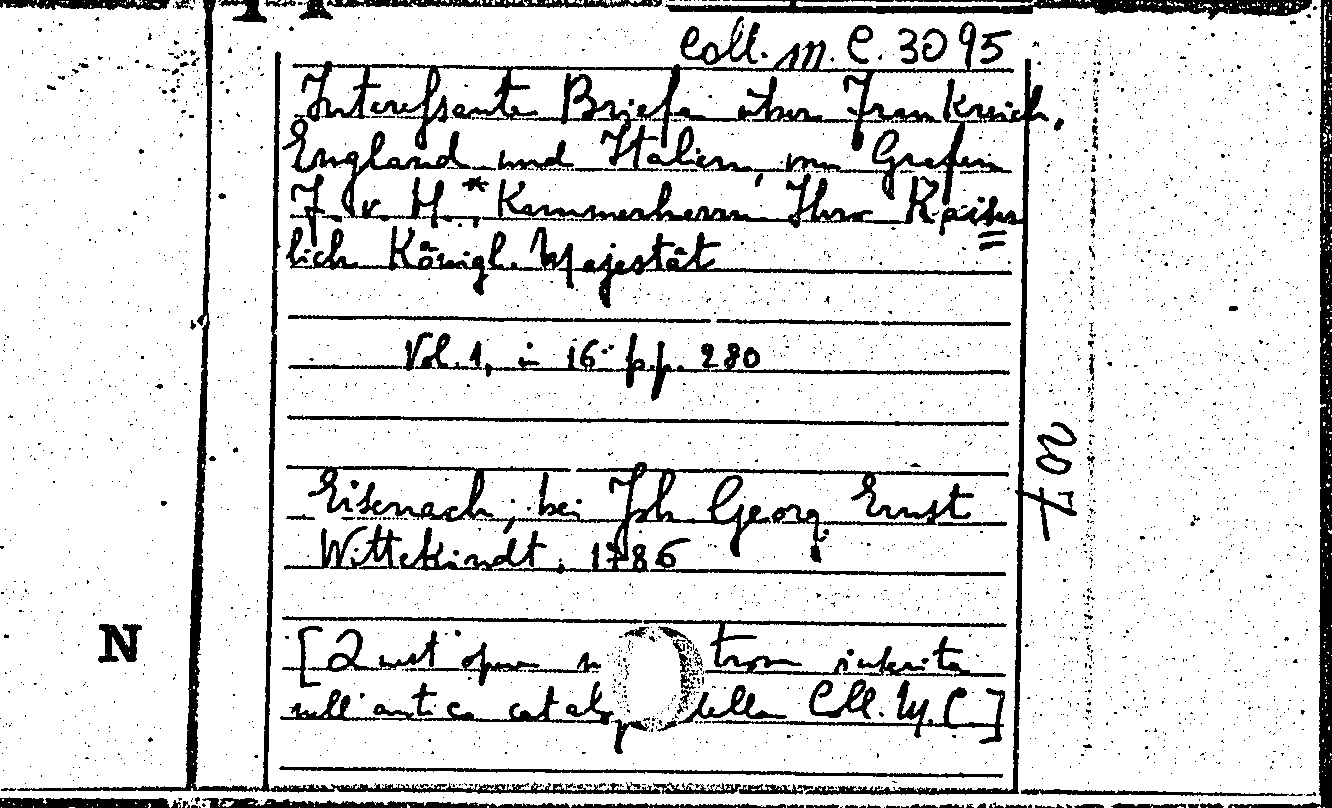 Coll. M. C. 3095
Interessante Briefe über Frankreich,
England und Italien, von Grafen
J. v. H.*, Kammerherrn Ihro Kaiser
lich Königl. Majestät
Vol. 1, in 16° p.p. 280
Eisenach, bei Joh Georg Ernst
Wittekindt. 1786
[Quest' opera trova inserita
nell'antico catalo della Coll. M. C]
N